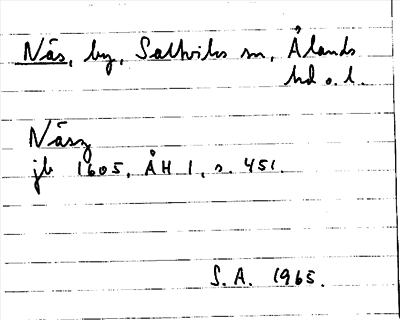 Näs, by, Saltviks sn, Ålands
hd o. l.
Näsz
jb 1605. ÅH 1, s. 451.
S. A. 1965.